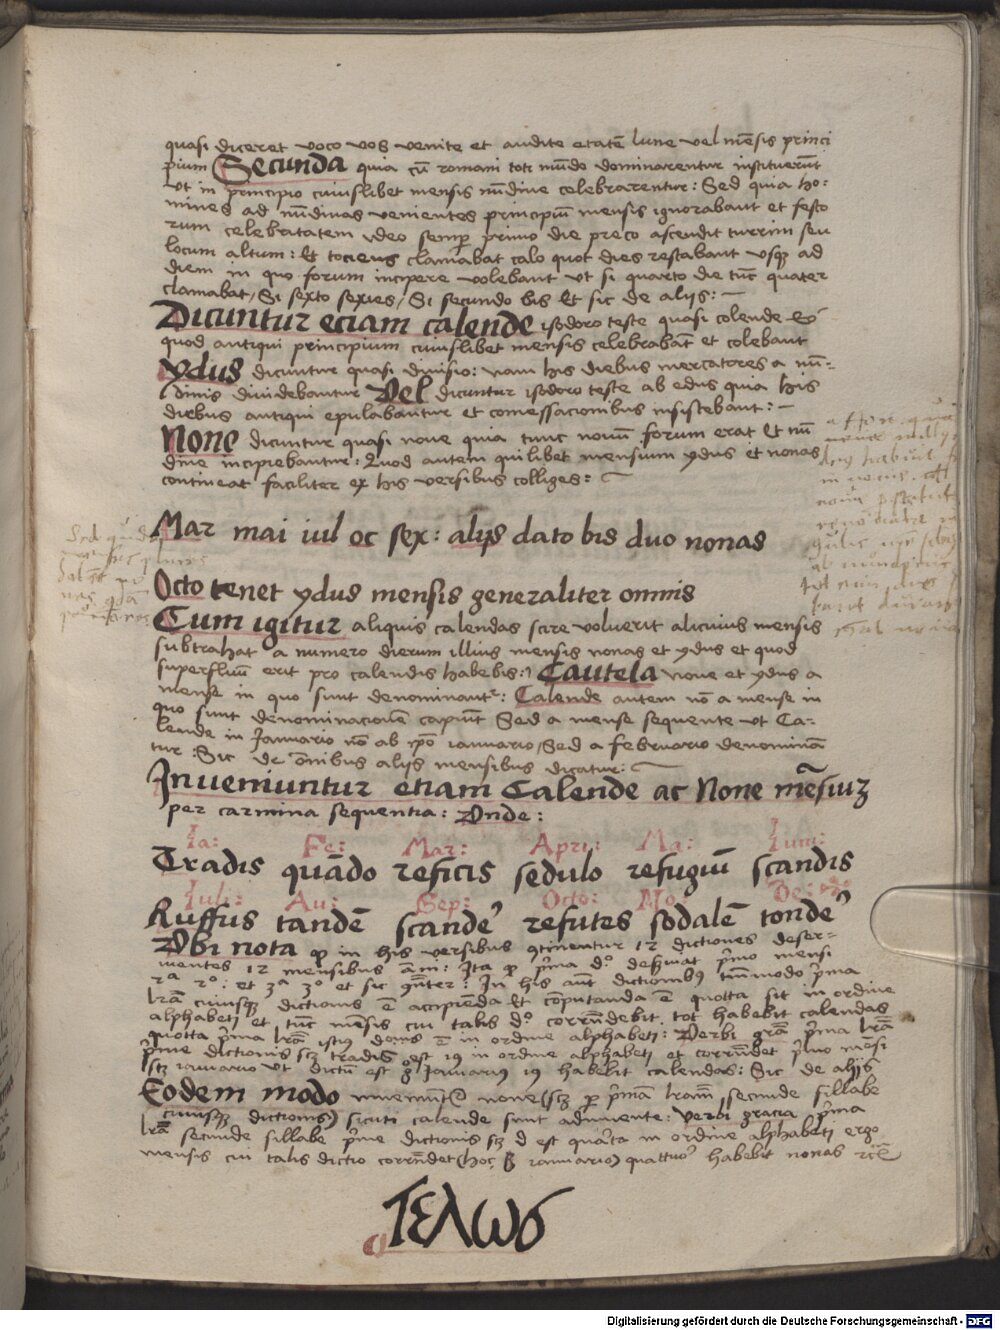 quasi diceret voco vos venite et audite etatē lune vel mēsis princi
pium Secunda quia cū romani toti mūdo dominarentur instituerūt
vt in principio cuiuslibet mensis nūdine celebrarentur: Sed quia ho=
mines ad nūdinas venientes principiū mensis ignorabant et festo
rum celebritatem ydeo semper primo die preco ascendit turrim seu
locum altum: Et tociens clamabat calo quot dies restabant vsqȝ ad
diem in quo forum incipere volebant vt si quarto die tūc quater
clamabat / Si sexto sexies / Si secundo bis Et sic de aliis: –
Dicuntur eciam calende isodoro teste quasi colende eo
quod antiqui principium cuiuslibet mensis celebrabāt et colebant
Ydus dicuntur quasi diuisio: nam his diebus mercatores a nū=
dinis diuidebantur Vel dicuntur isodoro teste ab edus quia his
diebus antiqui epulabantur et comessacionibus insistebant: –
None dicuntur quasi noue quia tunc nouū forum erat Et nū
dine incipiebantur: Quod autem quilibet mensium ydus et nonas
contineat faciliter ex his versibus colliges: ~
Mar mai iul oc sex: alijs dato bis duo nonas
Octo tenet ydus mensis generaliter omnis
Cum igitur aliquis calendas scire voluerit alicuius mensis
subtrahat a numero dierum illius mensis nonas et ydus et quod
superfluū erit pro calendis habebis: Cautela none et ydus a
mense in quo sunt denominantr: Calende autem nō a mense in
quo sunt denominacionē capiūt Sed a mense sequente vt Ca=
lende in Januario nō ab ip̄o ianuario / Sed a februario denominā
tur: Sic de ōnibus alijs mensibus dicatur: ~
Inueniuntur etiam Calende ac None mēsiuȝ
per carmina sequentia: Vnde:
Ia: Fe: Mar: Apri: Ma: Iun:
Tradis quādo reficis sedulo refugiū scandis
Iuli: Au: Sep: Octo: No: De:
Ruffus tandē scande' refutes sodalē tonde'
Vbi nota ꝙ in his versibus 9tinentur 12 dictiones deser=
uientes 12 mensibus
lrā cuiusqȝ dictionis ē accipiēda Et cōputanda ē quotta sit in ordine
alphabeti et tūc mēsis cui talis d° corrn̄debit tot habebit calendas
quotta p̄ma lrā in ordine alphabeti: Verbi grā p̄ma lrā
p̄me dictionis scȝ tradis est 19 in ordine alphabeti et corrn̄det p̄mo mēsi
scȝ ianuario vt dictū est Januarius 19 habebit calendas: Sic de alijs
Eodem modo none (scȝ p̄ p̄mā lram̄ secunde sillabe
cuiusqȝ dictionis) sicuti calende sunt adinuente: Verbi gracia p̄ma
lrā secunde sillabe p̄me dictionis scȝ d est quarta in ordine alphabeti ergo
mensis cui talis dictio corrn̄det (hoc ianuario) quattuor habebit nonas
Τελως
Digitalisierung gefördert durch die Deutsche Forschungsgemeinschaft - DFG